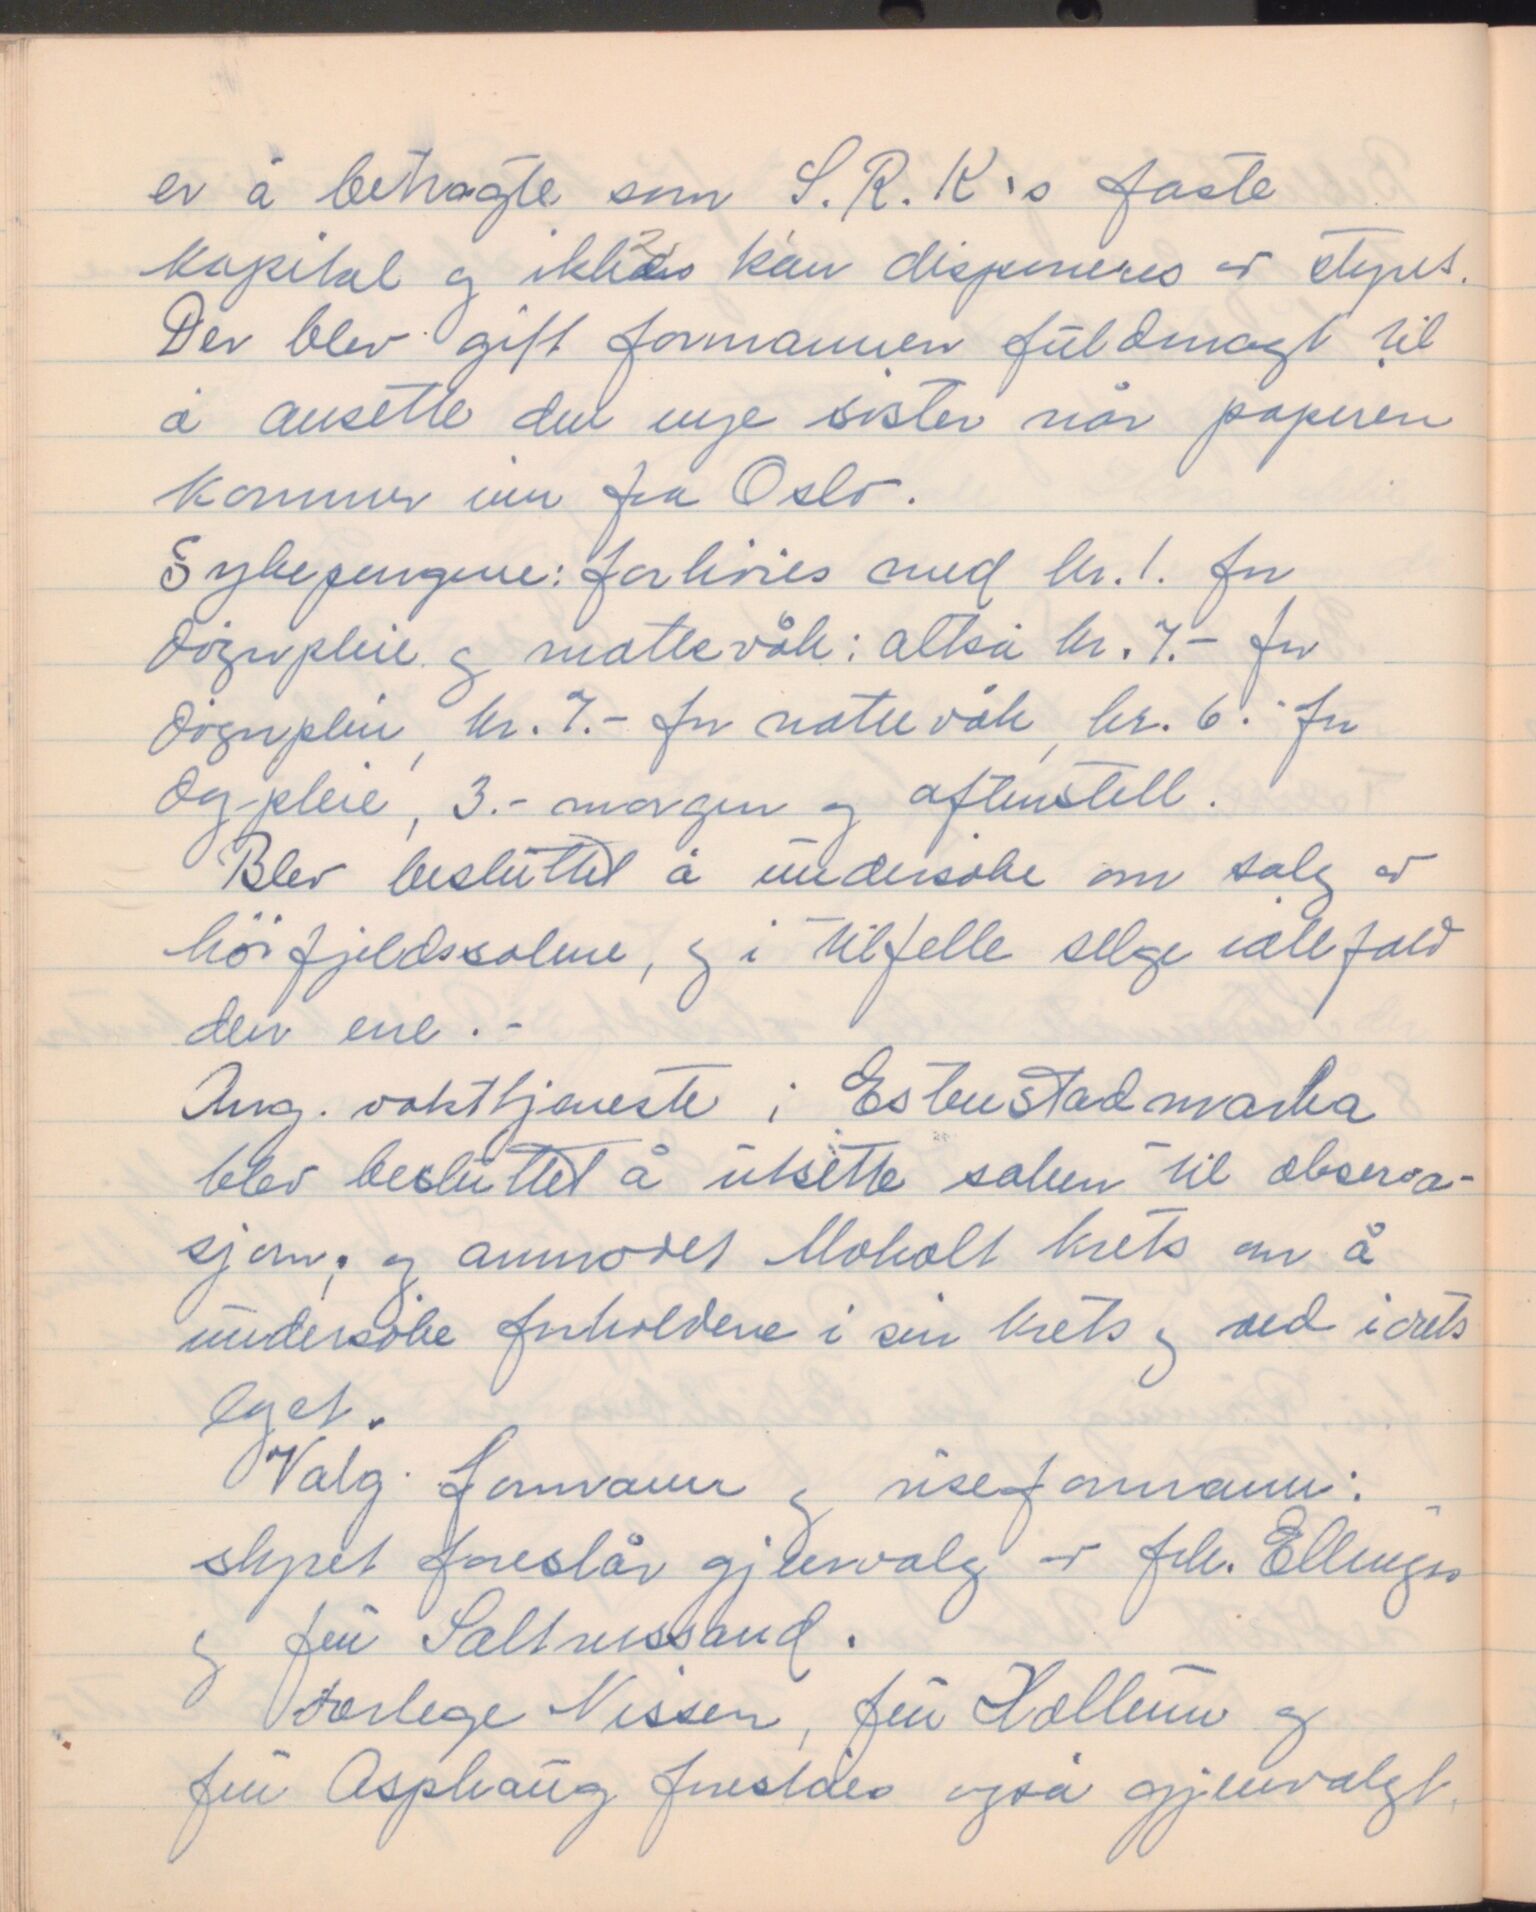 er å betragte som S.R.K's faste
kapital og ikke kan disponeres av styret.
Der blev gift formannen fuldmagt til
å ansette den nye sister når papiren
kommer inn fra Oslo.
Sykepengene: forhöies med kr. 1. for
dögnpleie og nattevåk: altså kr. 7.- for
dögnpleie, kr. 7.- for nattevåk, kr. 6.- for
dag-pleie, 3.- morgen og aftenstell.
Blev besluttet å undersöke om salg av
höifjeldssolene, og i tilfelle selge iallefald
den ene.-
Ang. vakttjeneste i Estenstadmarka
blev besluttet å utsette saken til observa-
sjon, og anmodet Moholt krets om å
undersöke forholdene i sin krets og ved idrets
laget.
Valg. formann og viseformann:
styret foreslår gjenvalg av frk. Ellingsen
og fru Saltnessand.
overlege Nissen, fru Hallem og
fru Asphaug foreslåes også gjenvalgt.